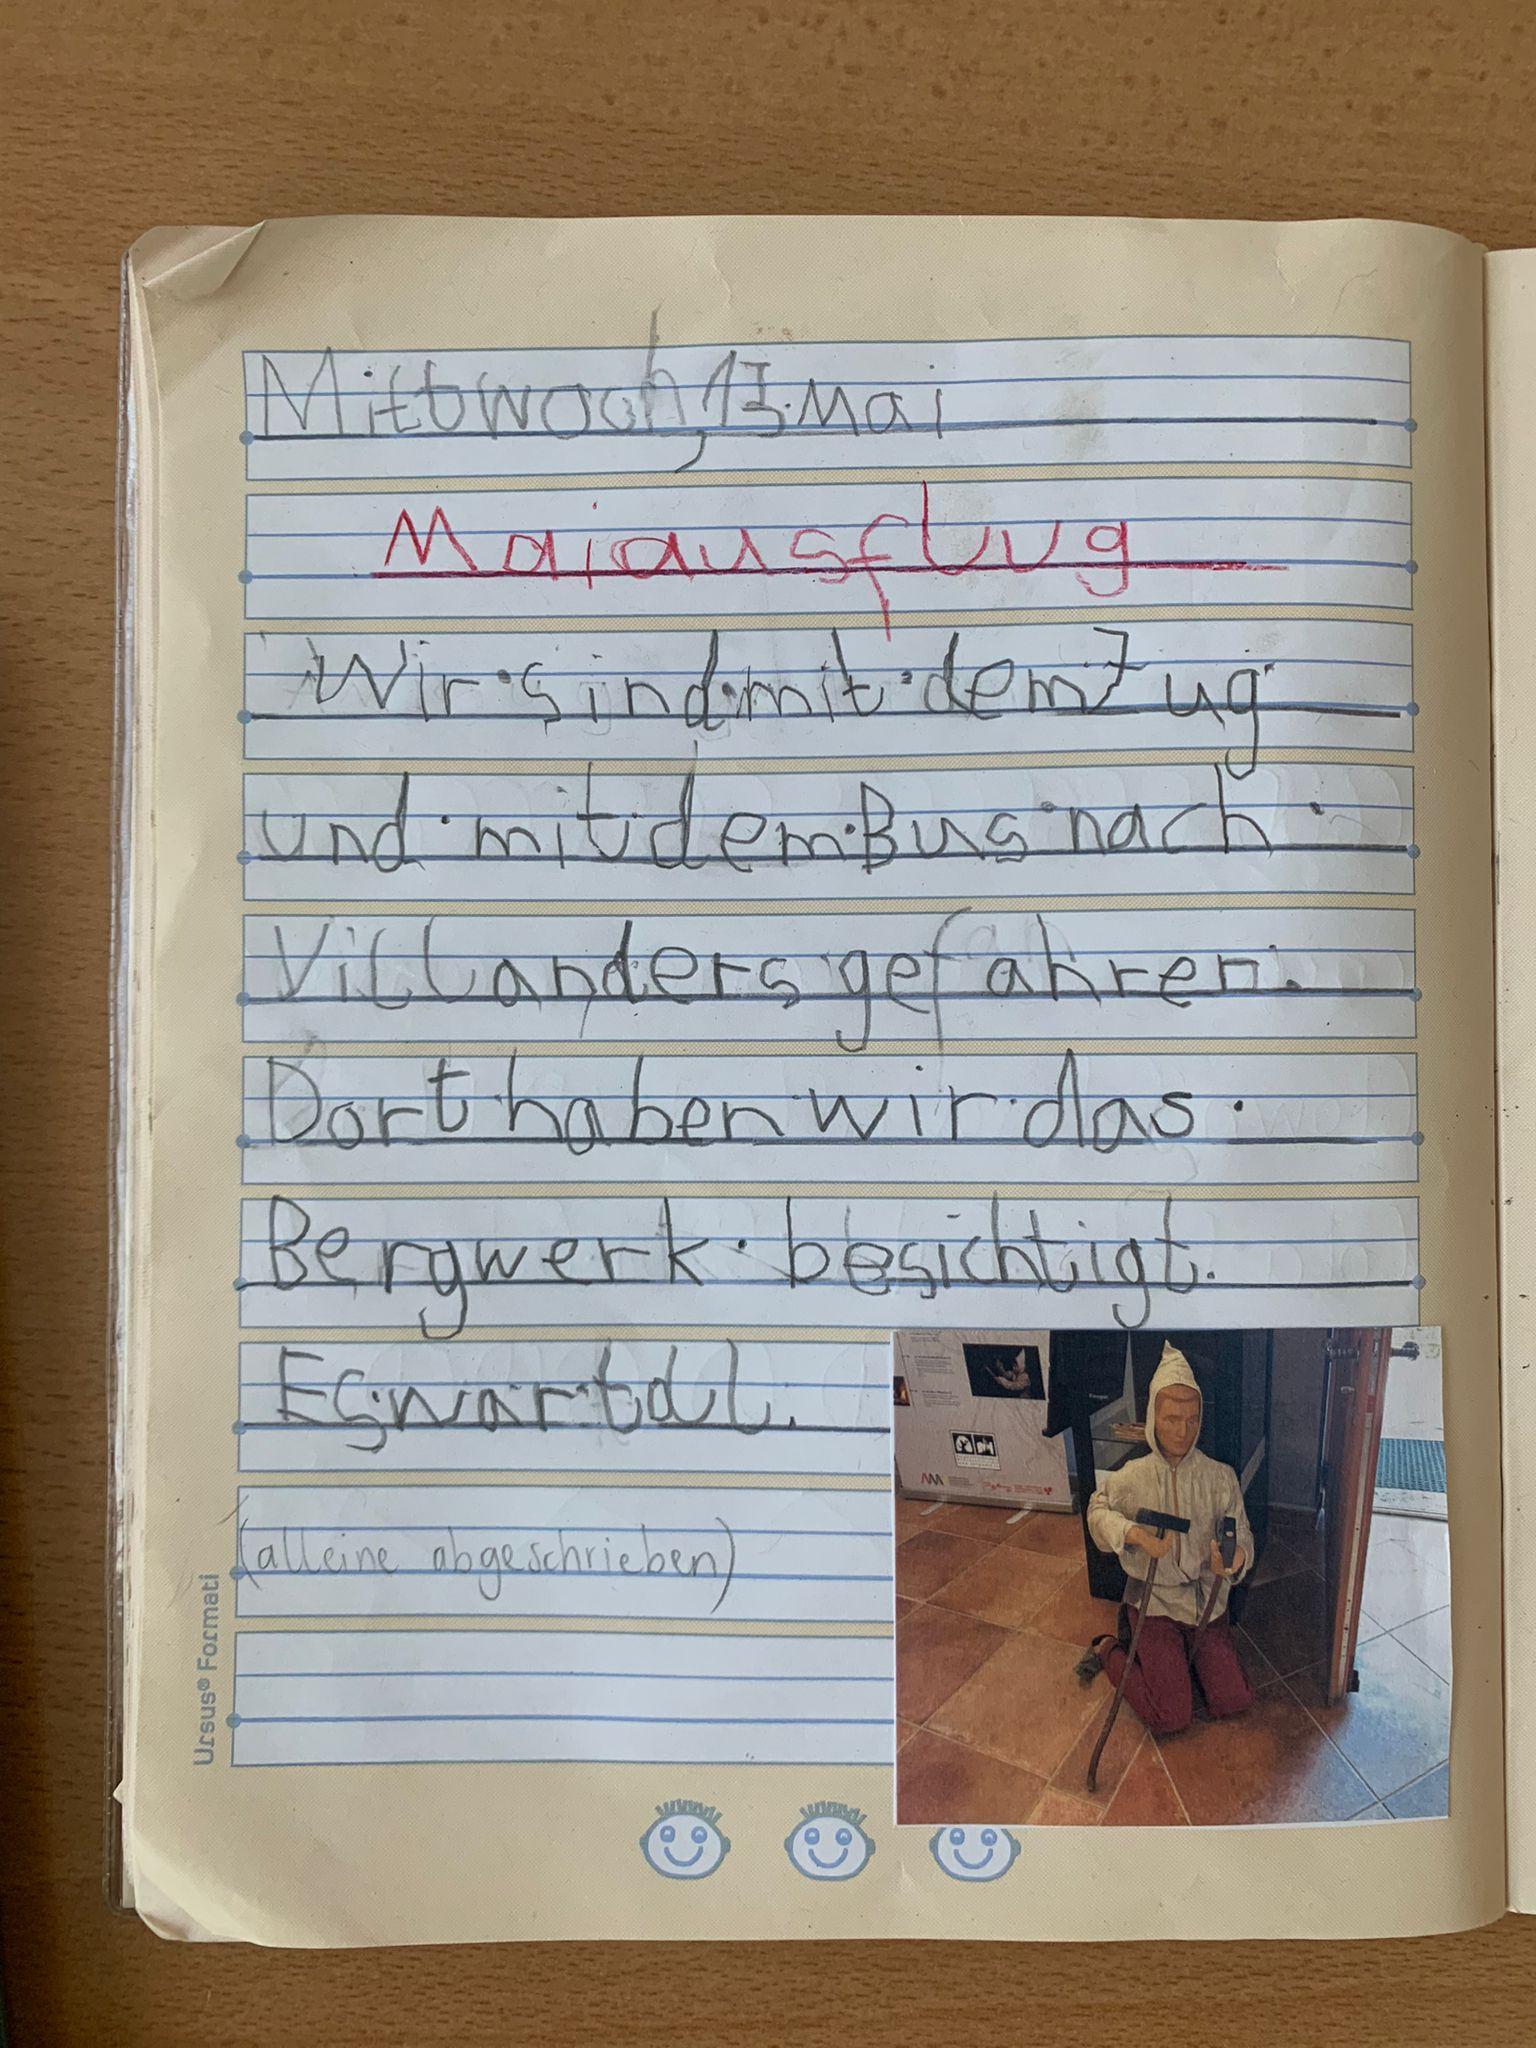 Mittwoch, 13. Mai
Maiausflug
Wir·sind·mit·dem Zug
und·mit·dem·Bus·nach·
Villanders·gefahren.
Dort·haben·wir·das·
Bergwerk·besichtigt.
Es·war·t dl.
(alleine abgeschrieben)
Ursus® Formati